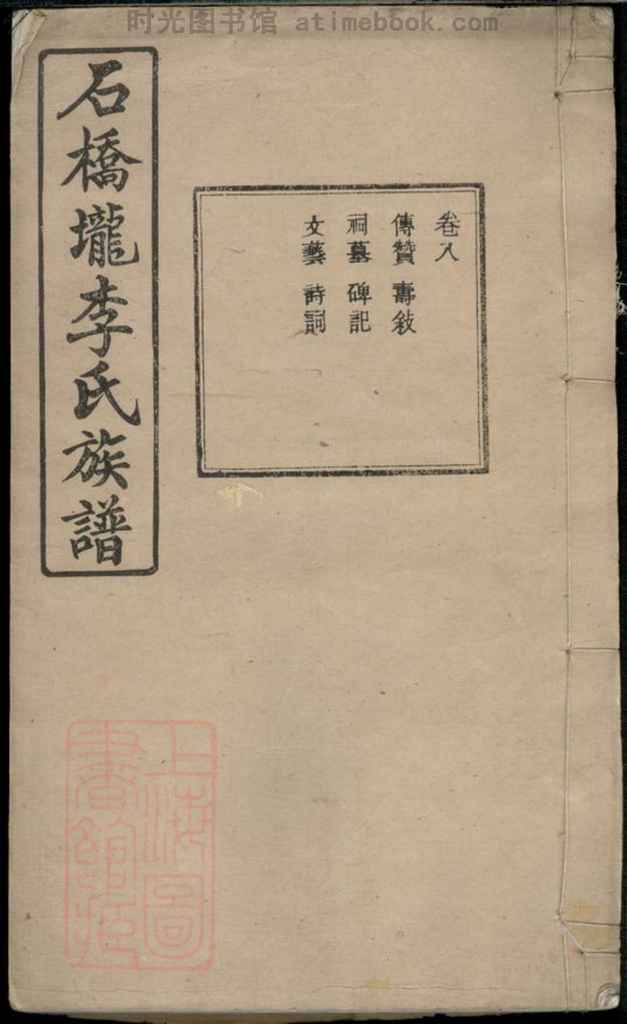 时光图书馆 atimebook.com
石橋壠李氏族譜
卷八
傳贊 壽敘
祠墓 碑記
文藝 詩詞
上海圖
書館藏